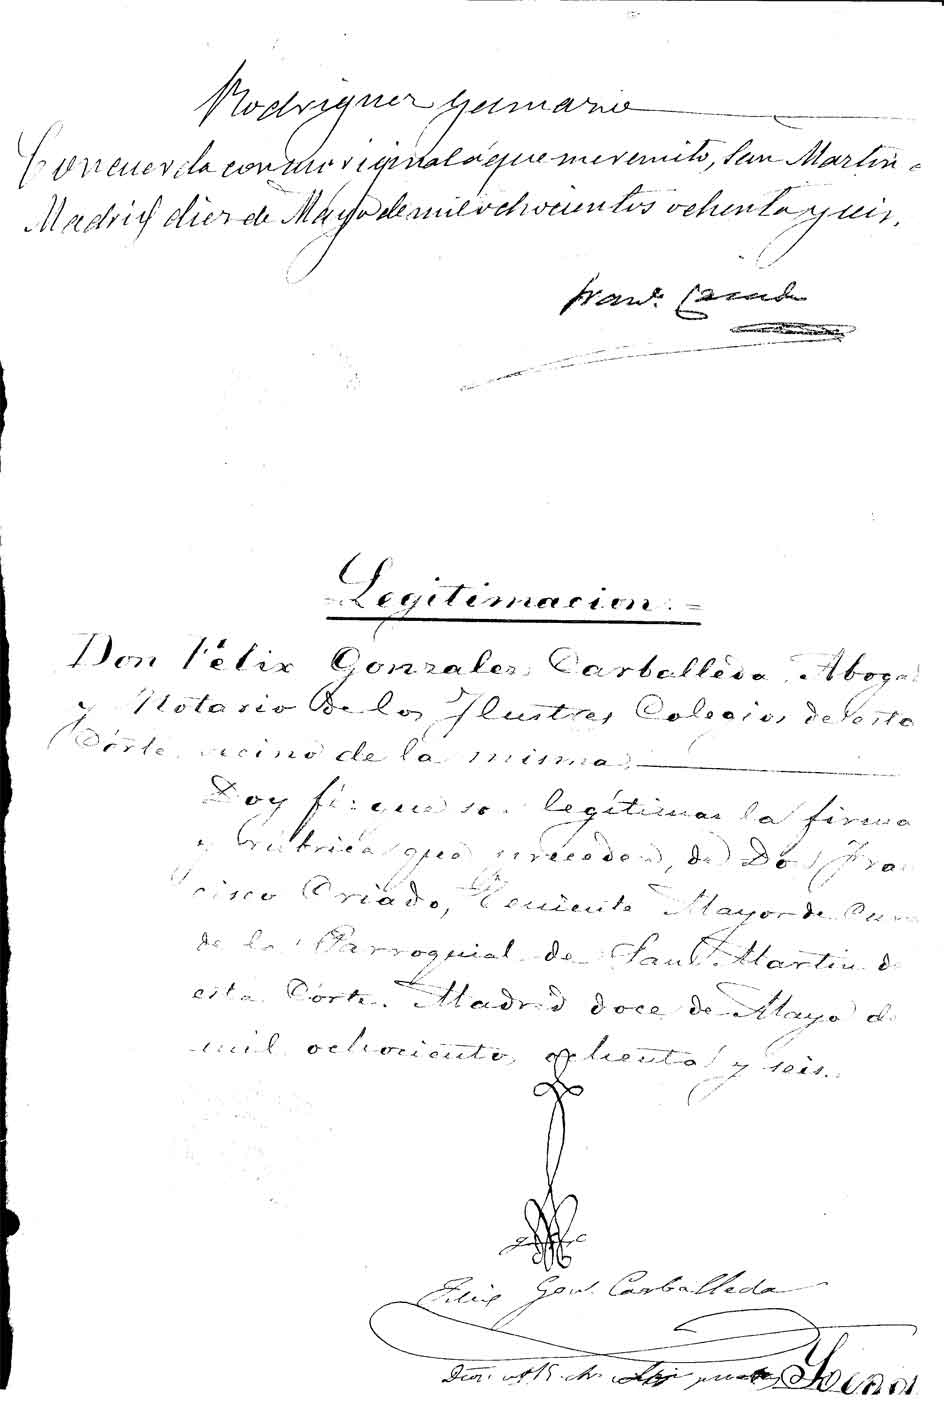 Rodriguez Yumario
Concuerda con su original á que me remito, San Martin
Madrid diez de Mayo de mil ochocientos ochenta y seis.
Franco. Criado
Legitimacion.=
Don Félix Gonzalez Carballeda, Aboga
y Notario de los Ilustres Colegios de esta
Córte, vecino de la misma.
Doy fé: que son legítimas la firma
y rúbrica que preceden, de Don Fran
cisco Criado, Teniente Mayor de Cura
de la Parroquial de San Martin de
esta Córte. Madrid doce de Mayo de
mil ochocientos ochenta y seis.
Felix Gonz. Carballeda